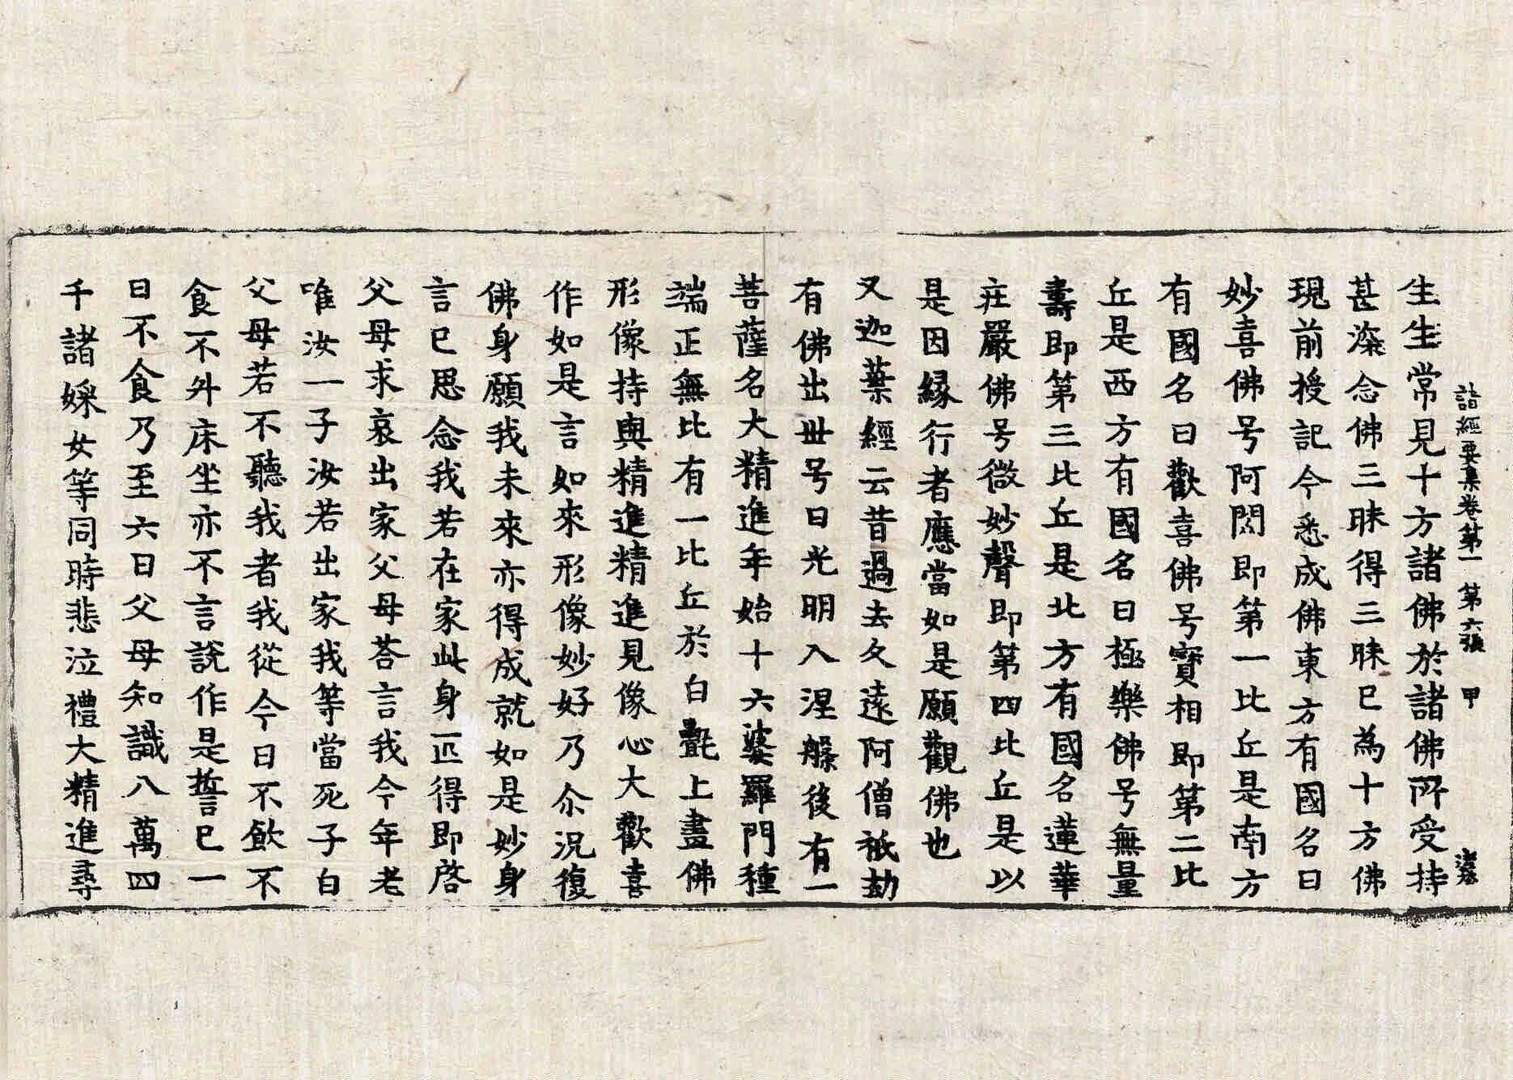 諸經要集卷第一 第六張 甲
生生常見十方諸佛於諸佛所受持
甚深念佛三昧得三昧已為十方佛
現前授記今悉成佛東方有國名曰
妙喜佛号阿閦即第一比丘是南方
有國名曰歡喜佛号寶相即第二比
丘是西方有國名曰極樂佛号無量
壽即第三比丘是北方有國名蓮華
莊嚴佛号微妙聲即第四比丘是以
是因緣行者應當如是願觀佛也
又迦葉經云昔過去久遠阿僧祇劫
有佛出世号曰光明入涅槃後有一
菩薩名大精進年始十六婆羅門種
端正無比有一比丘於白㲲上畫佛
形像持與精進精進見像心大歡喜
作如是言如來形像妙好乃尒況復
佛身願我未來亦得成就如是妙身
言已思念我若在家此身叵得即啓
父母求哀出家父母荅言我今年老
唯汝一子汝若出家我等當死子白
父母若不聽我者我從今日不飲不
食不昇床坐亦不言說作是誓已一
日不食乃至六日父母知識八萬四
千諸婇女等同時悲泣禮大精進尋